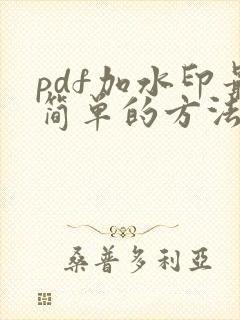 pdf加水印最
简单的方法
桑普多利亞